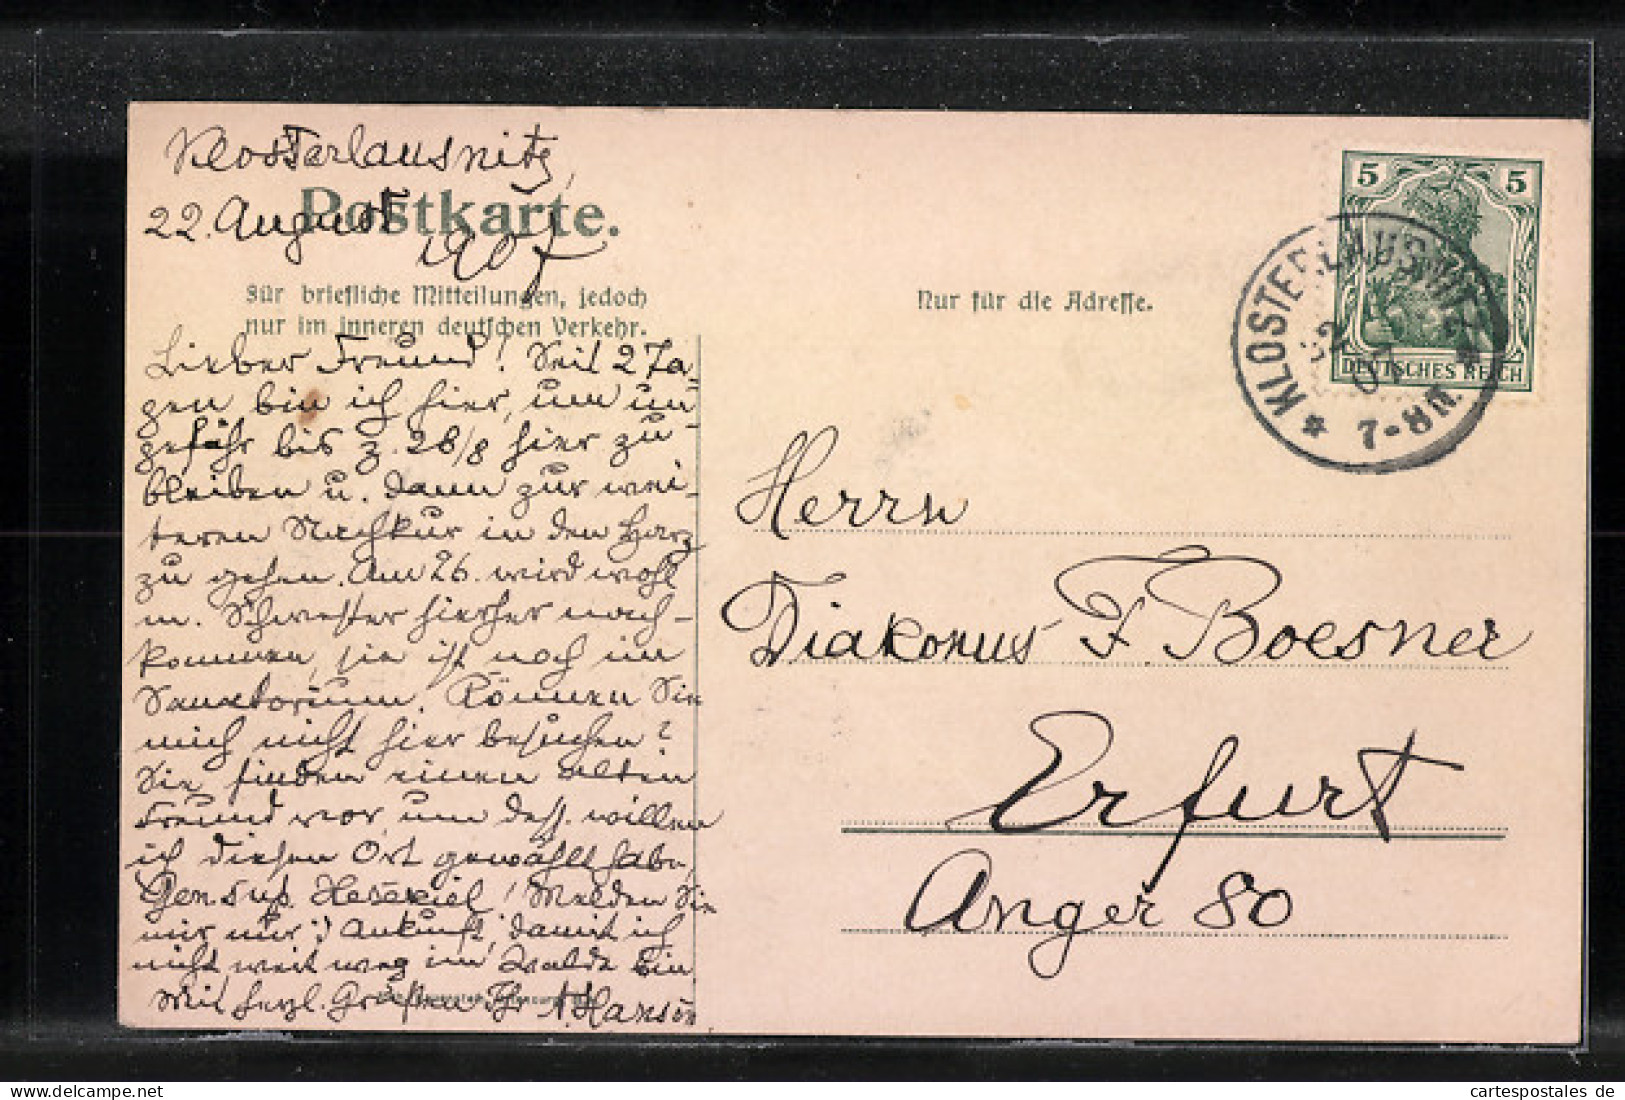 Klosterlausnitz,
22. August
1907
Postkarte.
Für briefliche Mitteilungen, jedoch
nur im inneren deutschen Verkehr.
Nur für die Adresse.
5 5
DEUTSCHES REICH
* KLOSTERLAUSNITZ *
07
7-8N.
Lieber Freund! Seit 2 Ta-
gen bin ich hier, um un-
gefähr bis z. 28/8 hier zu
bleiben u. dann zur wei-
teren Nachkur in den Harz
zu gehen. Am 26. wird wohl
m. Schwester hierher nach-
kommen, sie ist noch im
Sanatorium. Können Sie
mich nicht hier besuchen?
Sie finden einen alten
Freund vor, um dess. willen
ich diesen Ort gewählt habe,
Gen. sup. Hesekiel! Melden Sie
mir nur Ankunft, damit ich
nicht weit weg im Walde bin
Mit herzl. Grüßen Ihr A. Hansen
Herrn
Diakonus F Boesner
Erfurt
Anger 80
cartespostales de